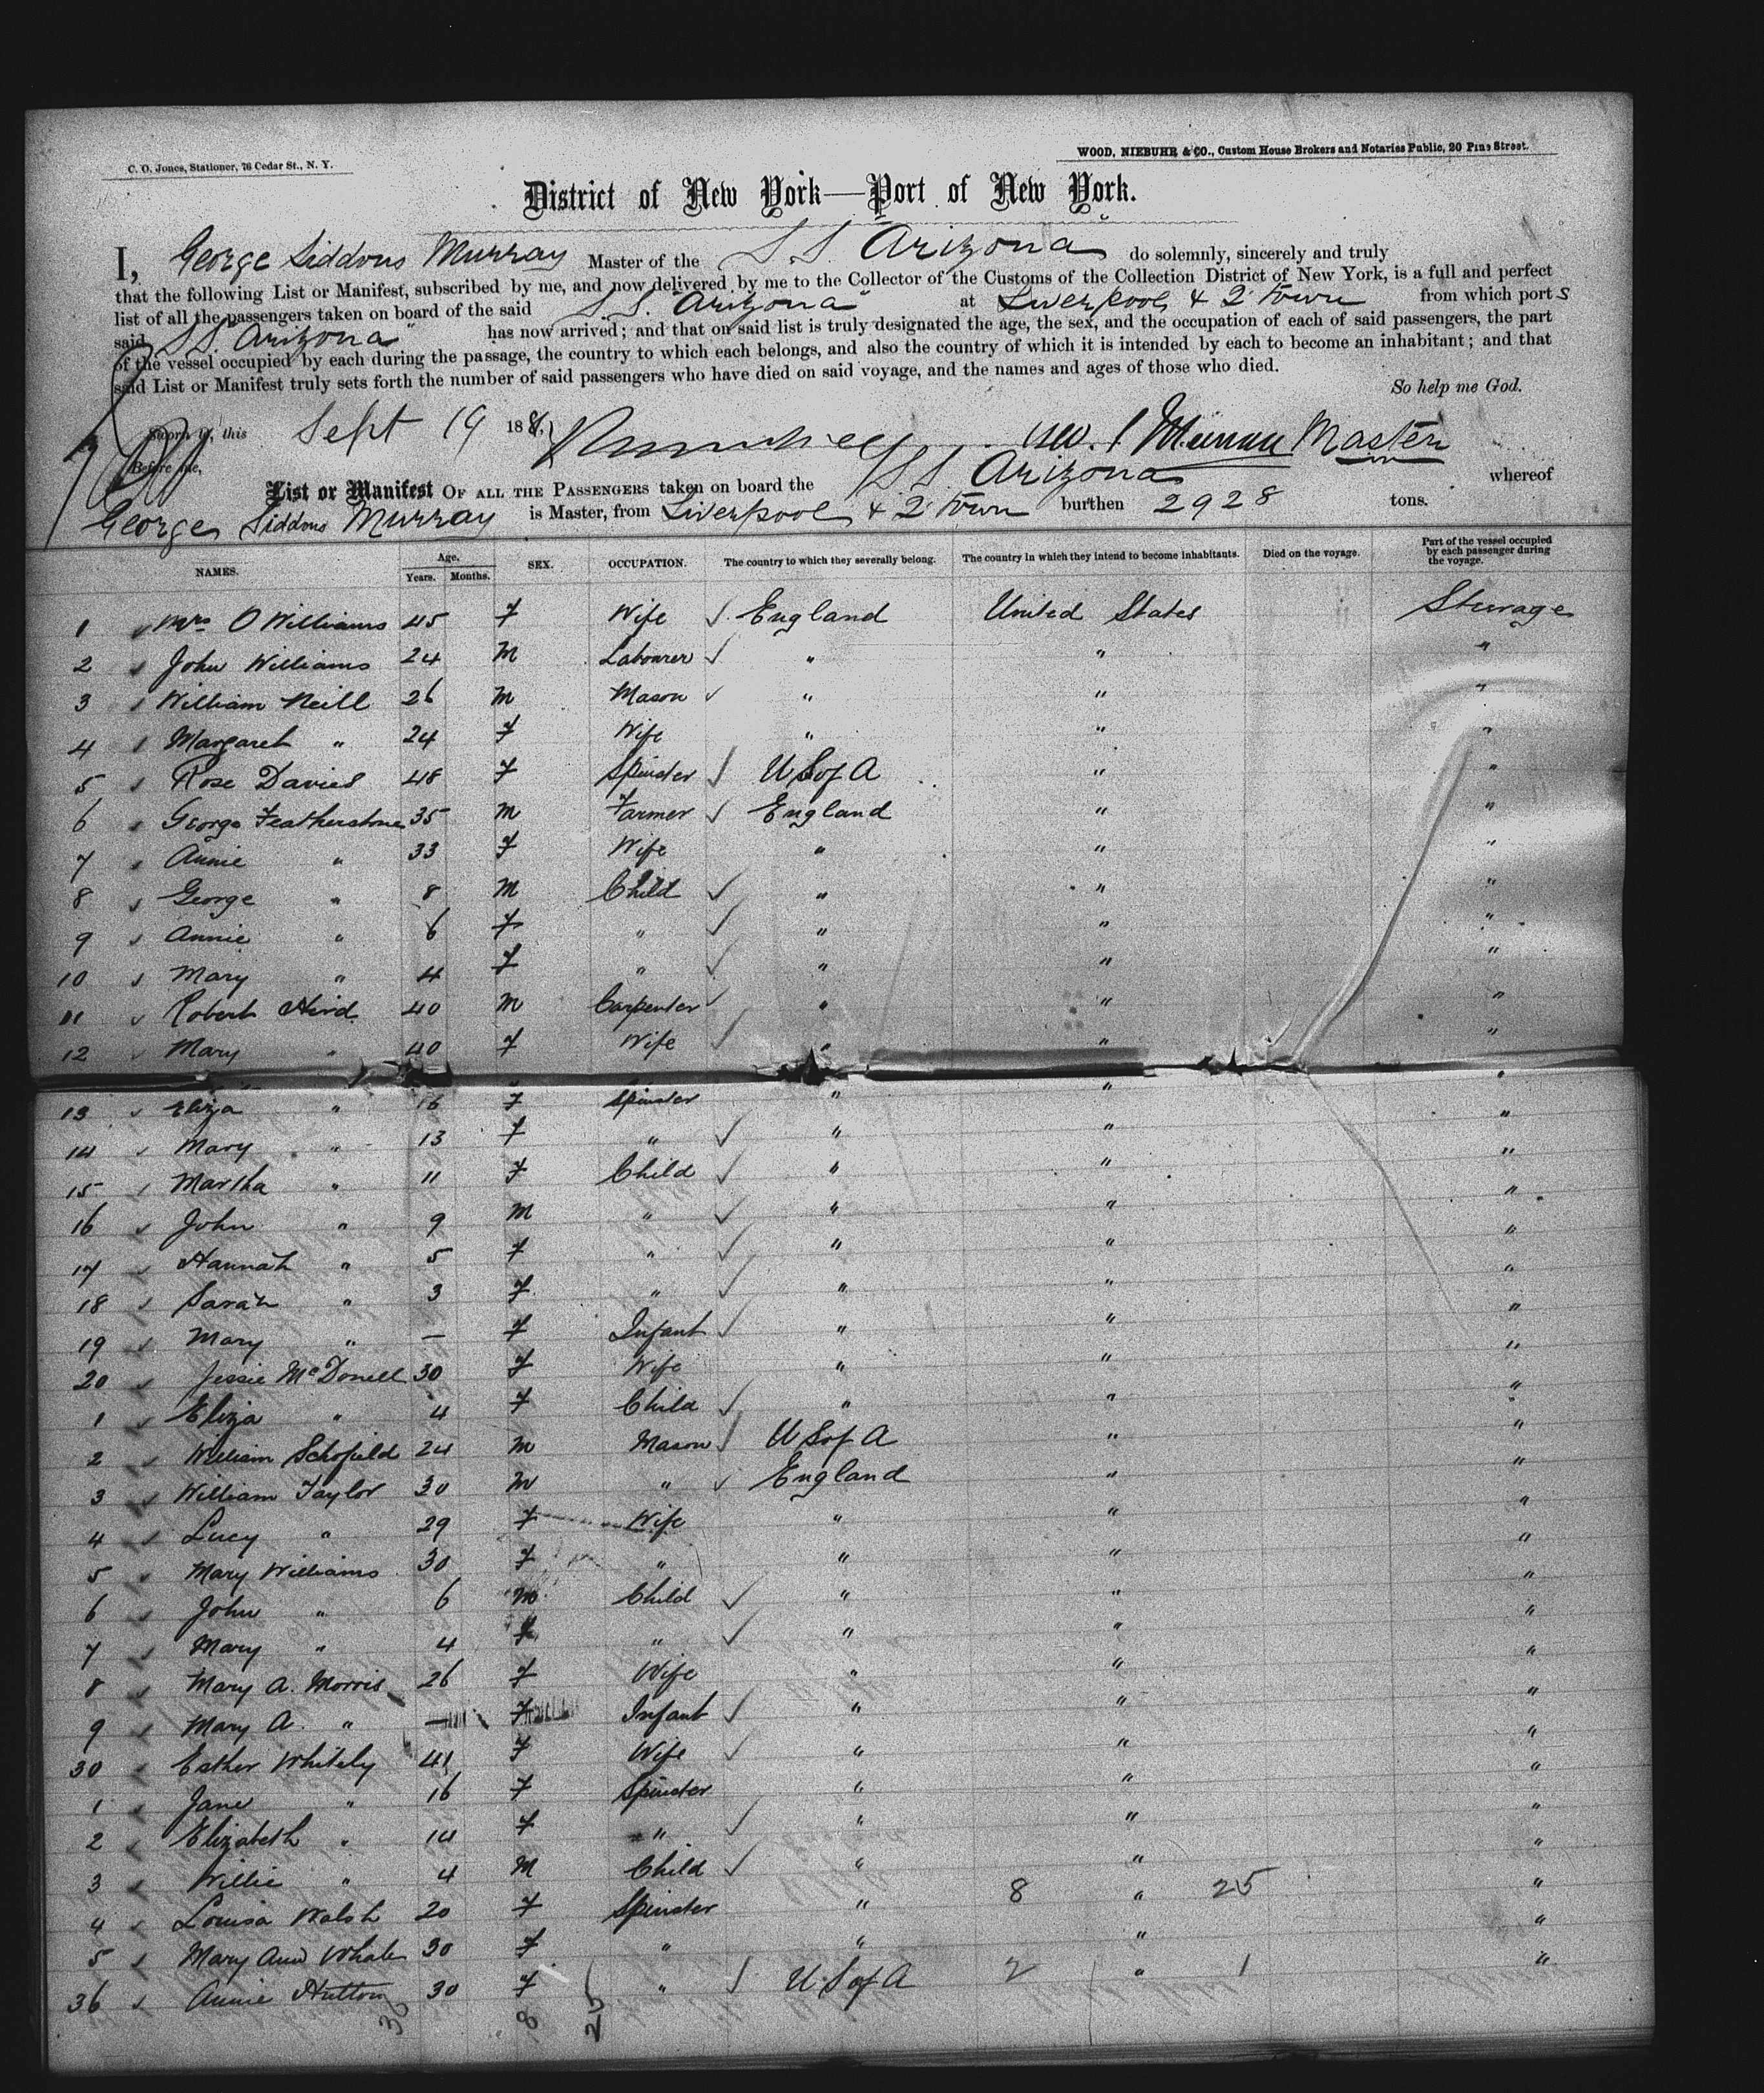 C. O. Jones, Stationer, 76 Cedar St., N. Y.
WOOD, NIEBUHR & CO., Custom House Brokers and Notaries Public, 20 Pine Street.
District of New York—Port of New York.
I, George Siddons Murray Master of the S.S. Arizona do solemnly, sincerely and truly
that the following List or Manifest, subscribed by me, and now delivered by me to the Collector of the Customs of the Collection District of New York, is a full and perfect
list of all the passengers taken on board of the said S.S. "Arizona" at Liverpool & Q Town from which ports
said S.S. "Arizona" has now arrived; and that on said list is truly designated the age, the sex, and the occupation of each of said passengers, the part
of the vessel occupied by each during the passage, the country to which each belongs, and also the country of which it is intended by each to become an inhabitant; and that
said List or Manifest truly sets forth the number of said passengers who have died on said voyage, and the names and ages of those who died.
So help me God.
Sworn to, this Sept 19 188
Geo. S Murray Master
Before me,
List or Manifest OF ALL THE PASSENGERS taken on board the S.S. Arizona whereof
George Siddons Murray is Master, from Liverpool & Q Town burthen 2928 tons.
NAMES. Age. Years. Months. SEX. OCCUPATION. The country to which they severally belong. The country in which they intend to become inhabitants. Died on the voyage. Part of the vessel occupied by each passenger during the voyage.
1 Mrs O Williams 45 F Wife England United States Sturage
2 John Williams 24 M Labourer " " "
3 William Neill 26 M Mason " " "
4 Margaret " 24 F Wife " " "
5 Rose Davies 48 F Spinster U S of A " "
6 George Featherstone 35 M Farmer England " "
7 Annie " 33 F Wife " " "
8 George " 8 M Child " " "
9 Annie " 6 F " " " "
10 Mary " 4 F " " " "
11 Robert Hird 40 M Carpenter " " "
12 Mary " 40 F Wife " " "
13 Eliza " 16 F Spinster " " "
14 Mary " 13 F " " " "
15 Martha " 11 F Child " " "
16 John " 9 M " " " "
17 Hannah " 5 F " " " "
18 Sarah " 3 F " " " "
19 Mary " — F Infant " " "
20 Jessie McDonell 30 F Wife " " "
1 Eliza " 4 F Child " " "
2 William Schofield 24 M Mason U S of A " "
3 William Taylor 30 M " England " "
4 Lucy " 29 F Wife " " "
5 Mary Williams 30 F " " " "
6 John " 6 M Child " " "
7 Mary " 4 F " " " "
8 Mary A. Morris 26 F Wife " " "
9 Mary A. " — F Infant " " "
30 Esther Whitely 41 F Wife " " "
1 Jane " 16 F Spinster " " "
2 Elizabeth " 14 F " " " "
3 Willie " 4 M Child " " "
4 Louisa Walsh 20 F Spinster " 8 " 25 "
5 Mary Ann Whale 30 F " " " "
36 Annie Hutton 30 F " U S of A 2 " 1 "
36 8 25